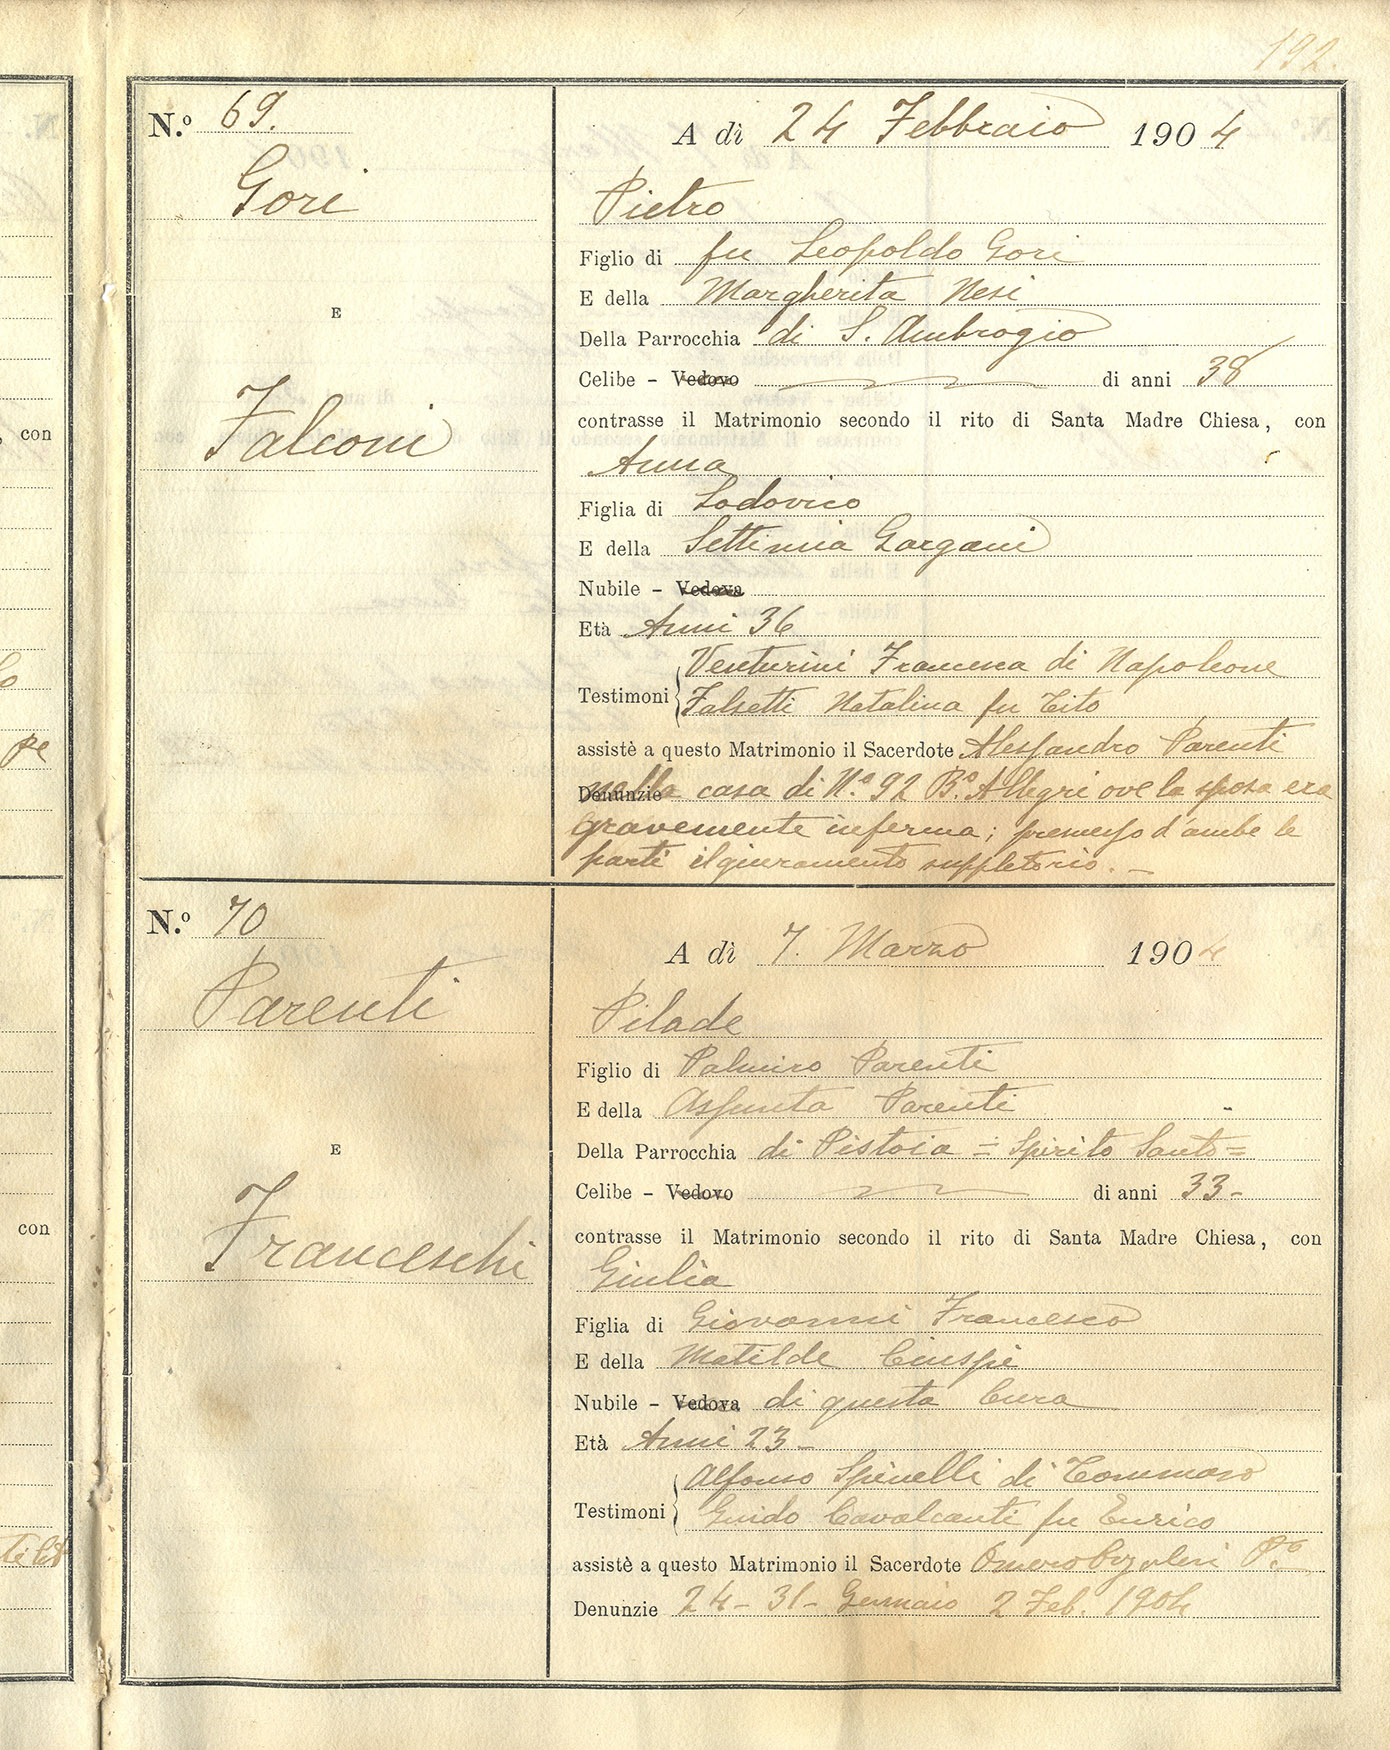 192.
N.º 69.
Gori
E
Falconi
A dì 24 Febbraio 1904
Pietro
Figlio di fu Leopoldo Gori
E della Margherita Nesi
Della Parrocchia di S. Ambrogio
Celibe - Vedovo di anni 38
contrasse il Matrimonio secondo il rito di Santa Madre Chiesa, con
Anna
Figlia di Lodovico
E della Settimia Gargani
Nubile - Vedova
Età Anni 36
Venturini Francesca di Napoleone
Testimoni
Falsetti Natalina fu Tito
assistè a questo Matrimonio il Sacerdote Alessandro Parenti
Denunzie nella casa di N.º 92 B.º Allegri ove la sposa era
gravemente inferma; premesso d'ambe le
parti il giuramento suppletorio. —
N.º 70
Parenti
E
Franceschi
A dì 7. Marzo 1904
Pilade
Figlio di Palmiro Parenti
E della Assunta Parenti
Della Parrocchia di Pistoia = Spirito Santo =
Celibe - Vedovo di anni 33-
contrasse il Matrimonio secondo il rito di Santa Madre Chiesa, con
Giulia
Figlia di Giovanni Francesco
E della Matilde
Nubile - Vedova di questa Cura
Età Anni 23 -
Alfonso Spinelli di Tommaso
Testimoni
Guido Cavalcanti fu Enrico
assistè a questo Matrimonio il Sacerdote Omero P.º
Denunzie 24 - 31 - Gennaio 2 Feb. 1904
, con
pe
con